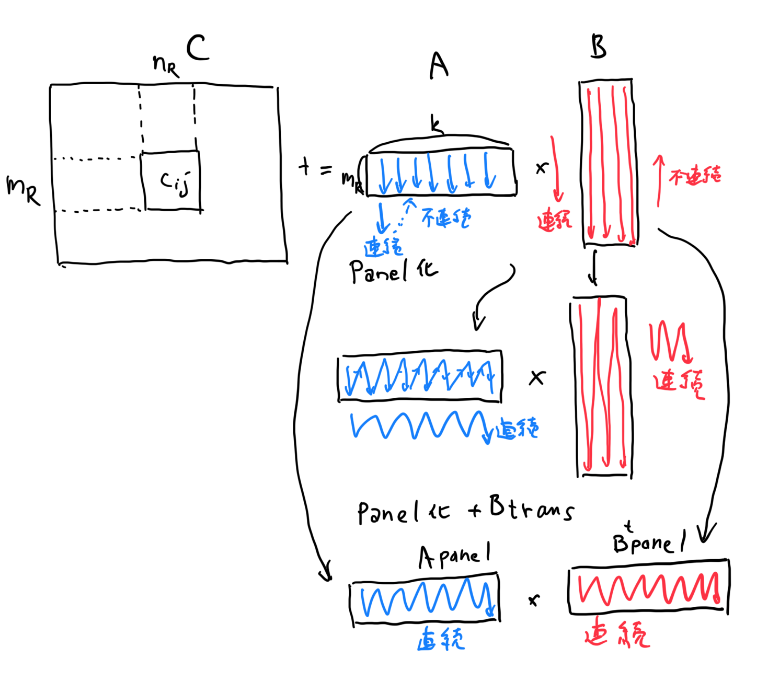 C
n_R
m_R
C_ij
+=
A
k
m_R
連続
不連続
×
B
連続
不連続
Panel化
連続
×
連続
Panel化 + Btrans
A panel
連続
×
B^t panel
連続